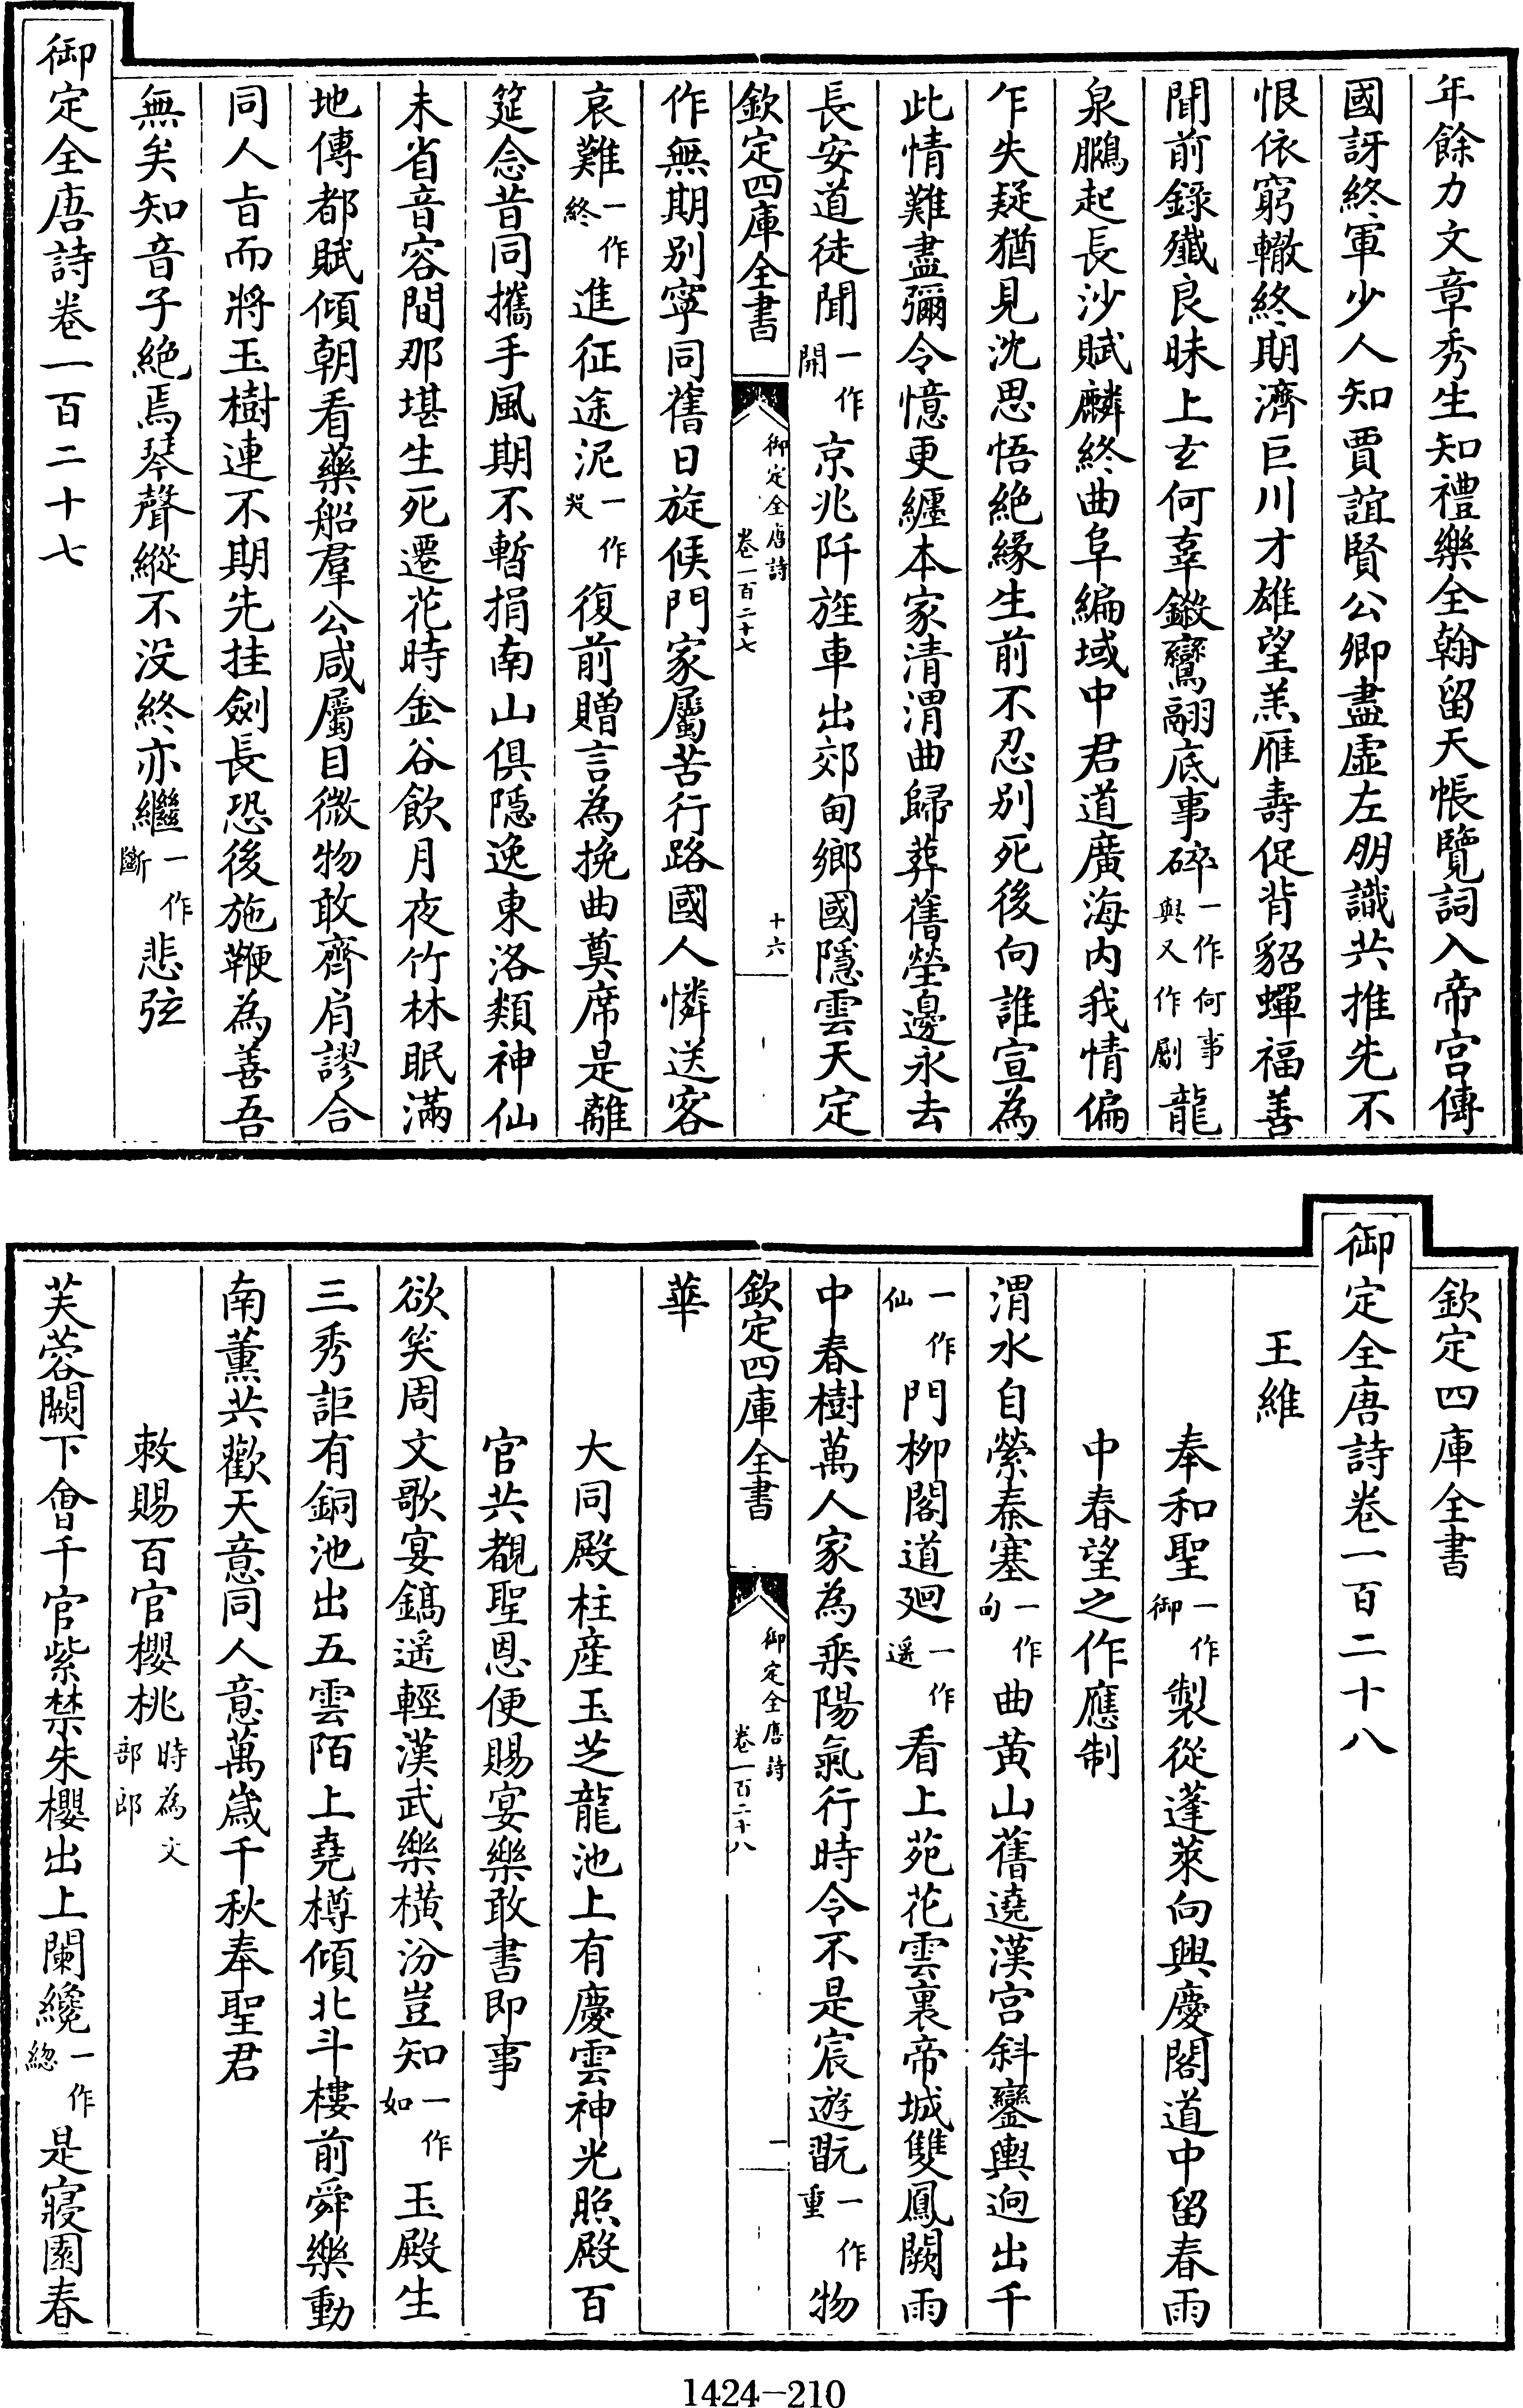 年餘力文章秀生知禮樂全翰留天帳覽詞入帝宮傳
國訝終軍少人知賈誼賢公卿盡虛左朋識共推先不
恨依窮轍終期濟巨川才雄望羔雁壽促背貂蟬福善
聞前錄殲良昧上玄何辜鎩鸞翮底事碎一作何事與又作劚龍
泉鵩起長沙賦麟終曲阜編域中君道廣海內我情偏
乍失疑猶見沈思悟絕緣生前不忍別死後向誰宣為
此情難盡彌令憶更纏本家清渭曲歸葬舊塋邊永去
長安道徒聞一作開京兆阡旌車出郊甸鄉國隱雲天定
欽定四庫全書 御定全唐詩卷一百二十七 十六
作無期別寧同舊日旋候門家屬苦行路國人憐送客
哀難一作終進征途泥一作哭復前贈言為挽曲奠席是離
筵念昔同攜手風期不暫捐南山俱隱逸東洛類神仙
未省音容間那堪生死遷花時金谷飲月夜竹林眠滿
地傳都賦傾朝看藥船羣公咸屬目微物敢齊肩謬合
同人㫖而將玉樹連不期先挂劍長恐後施鞭為善吾
無矣知音子絕焉琴聲縱不没終亦繼一作斷悲弦
御定全唐詩卷一百二十七
欽定四庫全書
御定全唐詩卷一百二十八
王維
奉和聖一作御製從蓬萊向興慶閣道中留春雨
中春望之作應制
渭水自縈秦塞一作甸曲黃山舊遶漢宮斜鑾輿迥出千
一作仙門柳閣道迴一作遥看上苑花雲裏帝城雙鳳闕雨
中春樹萬人家為乘陽氣行時令不是宸遊翫一作重物
欽定四庫全書 御定全唐詩卷一百二十八 一
華
大同殿柱産玉芝龍池上有慶雲神光照殿百
官共覩聖恩便賜宴樂敢書即事
欲笑周文歌宴鎬遥輕漢武樂橫汾豈知一作如玉殿生
三秀詎有銅池出五雲陌上堯樽傾北斗樓前舜樂動
南薰共歡天意同人意萬歲千秋奉聖君
敕賜百官櫻桃時為文部郎
芙蓉闕下會千官紫禁朱櫻出上闌纔一作總是寢園春
1424-210